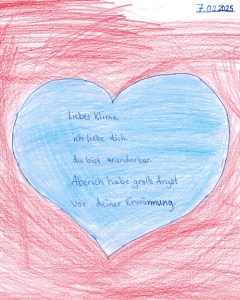 7.02.2025
Liebes Klima
ich liebe dich
du bist wunderbar.
Aber ich habe große Angst
vor deiner Erwärmung